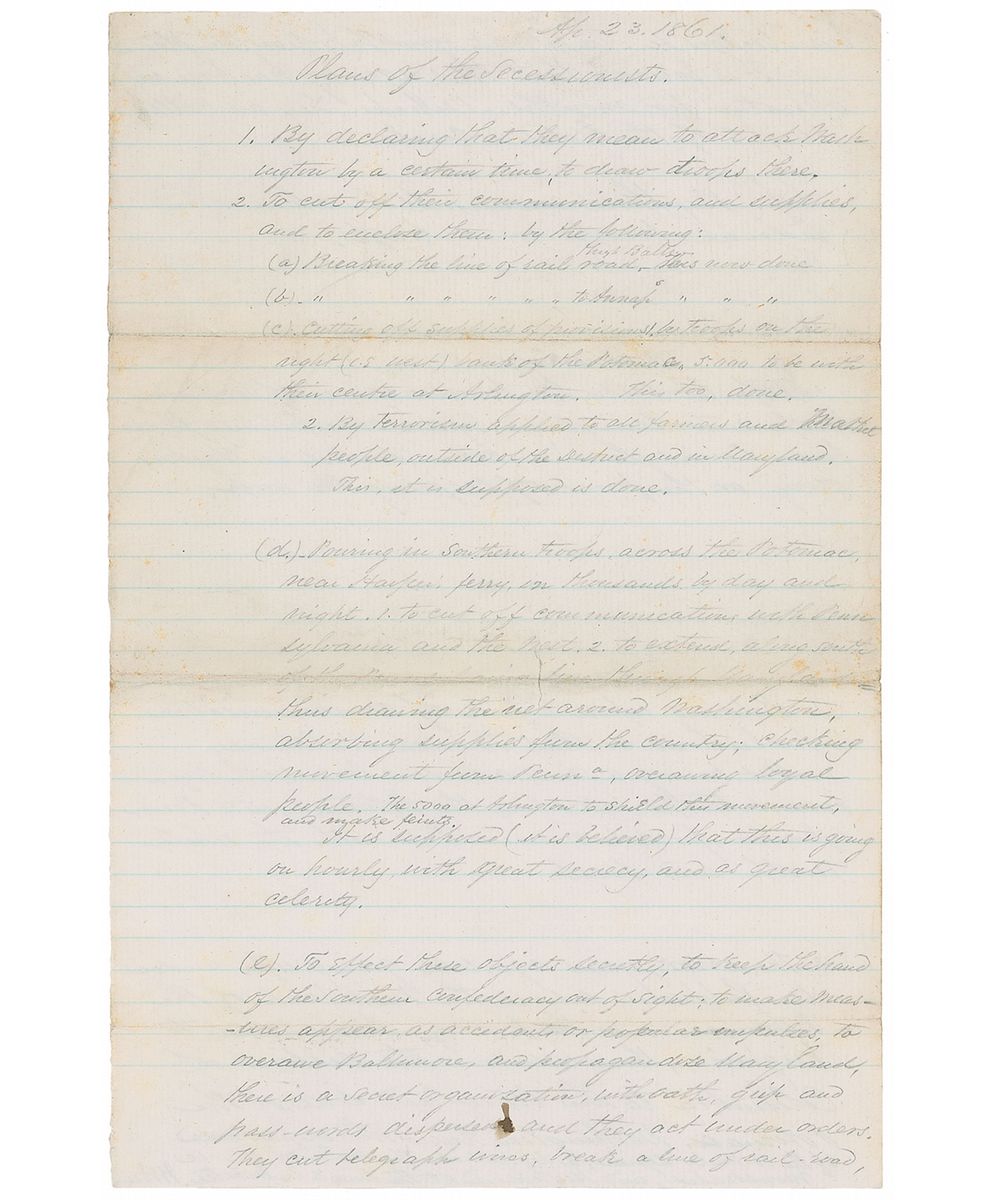 Ap. 23. 1861.
Plans of the Secessionists.
1. By declaring that they mean to attack Wash
ington by a certain time, to draw troops there.
2. To cut off their communications, and supplies,
and to enclose them: by the following:
thrgh Balto.
(a) Breaking the line of rail road, this now done
(b) - " " " " " " to Annaps " " "
(c). Cutting off supplies of provisions 1. by troops on the
right (i.e. west) bank of the Potomac, 5.000 to be with
their centre at Arlington. This too, done.
2. By terrorism applied to all farmers and
people, outside of the District and in Maryland.
This, it is supposed is done.
(d.) - Pouring in Southern troops, across the Potomac,
near Harpers ferry, in thousands by day and
night. 1. to cut off communication, with Penn
sylvania and the West. 2. to extend, along south
of the line through
thus drawing the net around Washington,
absorbing supplies from the country; checking
movement from Penna, overawing loyal
people. The 5000 at Arlington to shield this movement,
and make feints.
It is supposed (it is believed) that this is going
on hourly, with great secrecy, and as great
celerity.
(e). To effect these objects secretly, to keep the hand
of the Southern Confederacy out of sight; to make meas-
-ures appear, as accidents or popular impulses, to
overawe Baltimore, and propagandize Maryland,
there is a secret organization, with oath, grip and
pass-words dispersed and they act under orders.
They cut telegraph wires, break a line of rail-road,